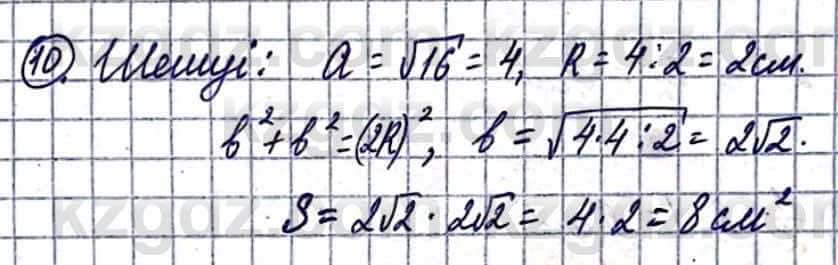 10. Шешуі: a = √16 = 4, R = 4:2 = 2см.
b² + b² = (2R)², b = √4·4:2 = 2√2.
S = 2√2 · 2√2 = 4·2 = 8 см²